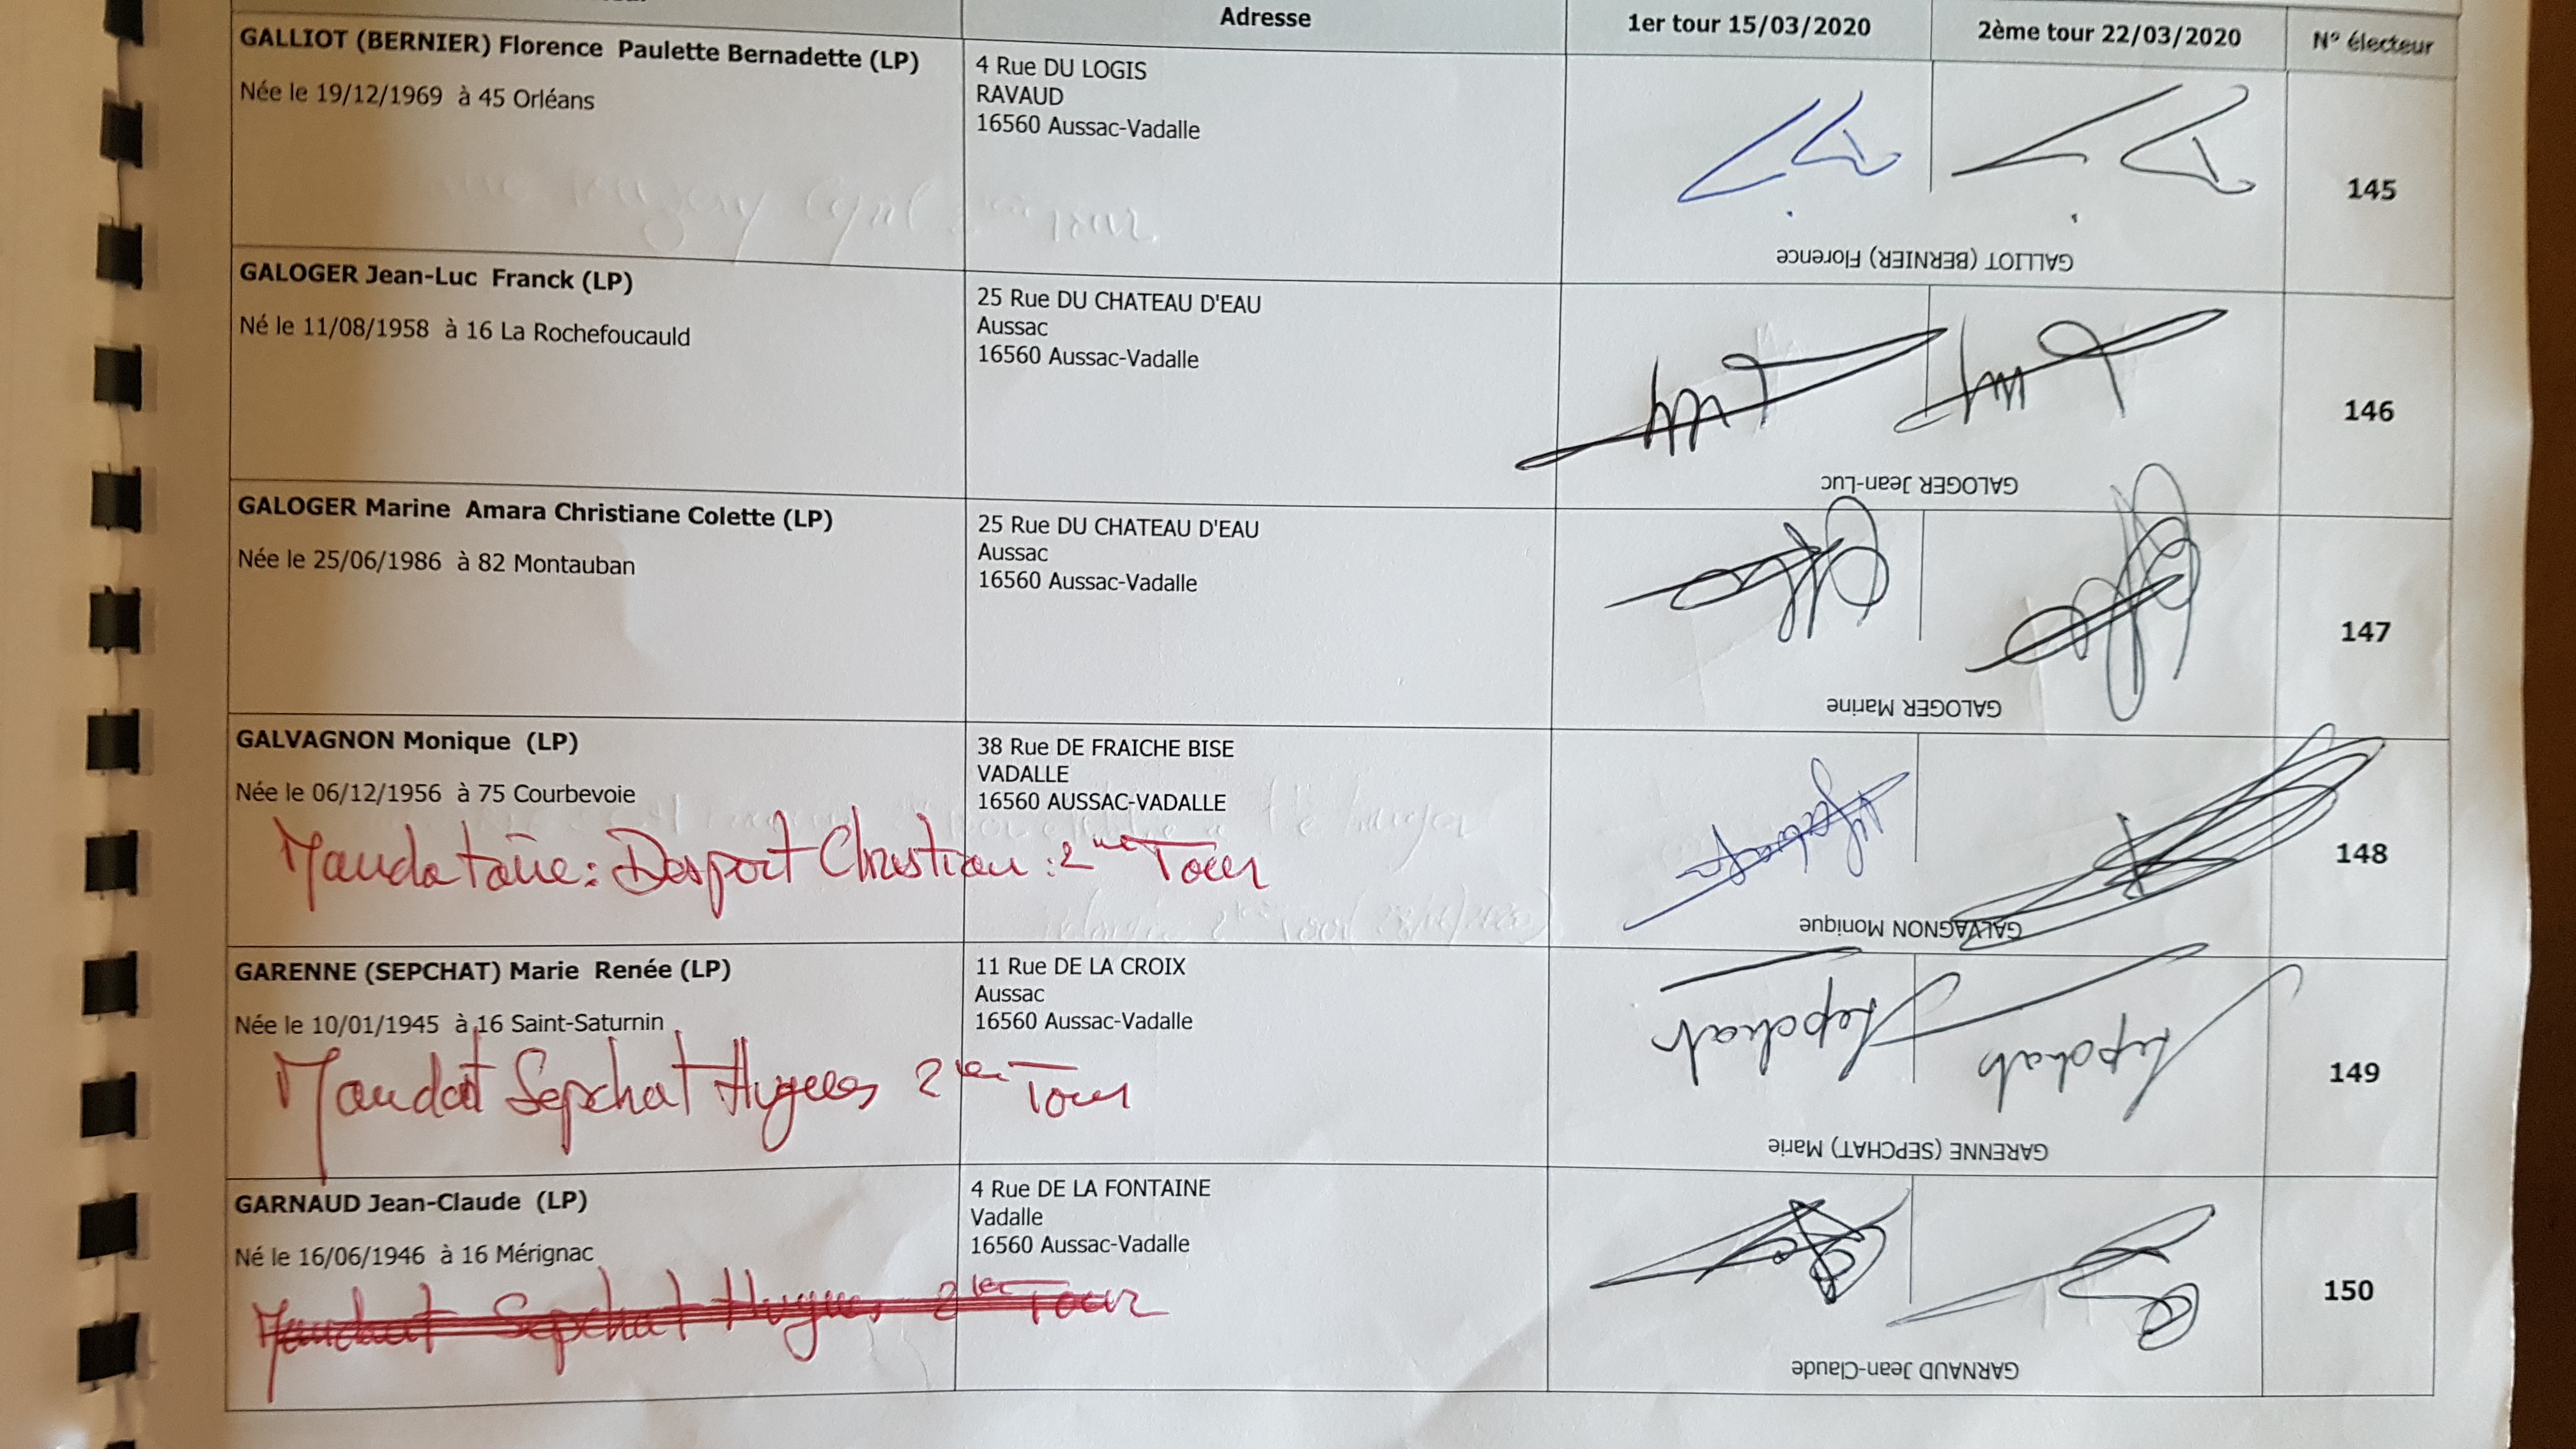 Adresse
1er tour 15/03/2020
2ème tour 22/03/2020
N° électeur
GALLIOT (BERNIER) Florence Paulette Bernadette (LP)
Née le 19/12/1969 à 45 Orléans
4 Rue DU LOGIS
RAVAUD
16560 Aussac-Vadalle
GALLIOT (BERNIER) Florence
145
GALOGER Jean-Luc Franck (LP)
Né le 11/08/1958 à 16 La Rochefoucauld
25 Rue DU CHATEAU D'EAU
Aussac
16560 Aussac-Vadalle
GALOGER Jean-Luc
146
GALOGER Marine Amara Christiane Colette (LP)
Née le 25/06/1986 à 82 Montauban
25 Rue DU CHATEAU D'EAU
Aussac
16560 Aussac-Vadalle
GALOGER Marine
147
GALVAGNON Monique (LP)
Née le 06/12/1956 à 75 Courbevoie
Mandataire: Desport Christian : 2me Tour
38 Rue DE FRAICHE BISE
VADALLE
16560 AUSSAC-VADALLE
GALVAGNON Monique
148
GARENNE (SEPCHAT) Marie Renée (LP)
Née le 10/01/1945 à 16 Saint-Saturnin
Mandat Sepchat Hugues 2ier Tour
11 Rue DE LA CROIX
Aussac
16560 Aussac-Vadalle
Sepchat
Sepchat
GARENNE (SEPCHAT) Marie
149
GARNAUD Jean-Claude (LP)
Né le 16/06/1946 à 16 Mérignac
Mandat Sepchat Hugues 2ier Tour
4 Rue DE LA FONTAINE
Vadalle
16560 Aussac-Vadalle
GARNAUD Jean-Claude
150